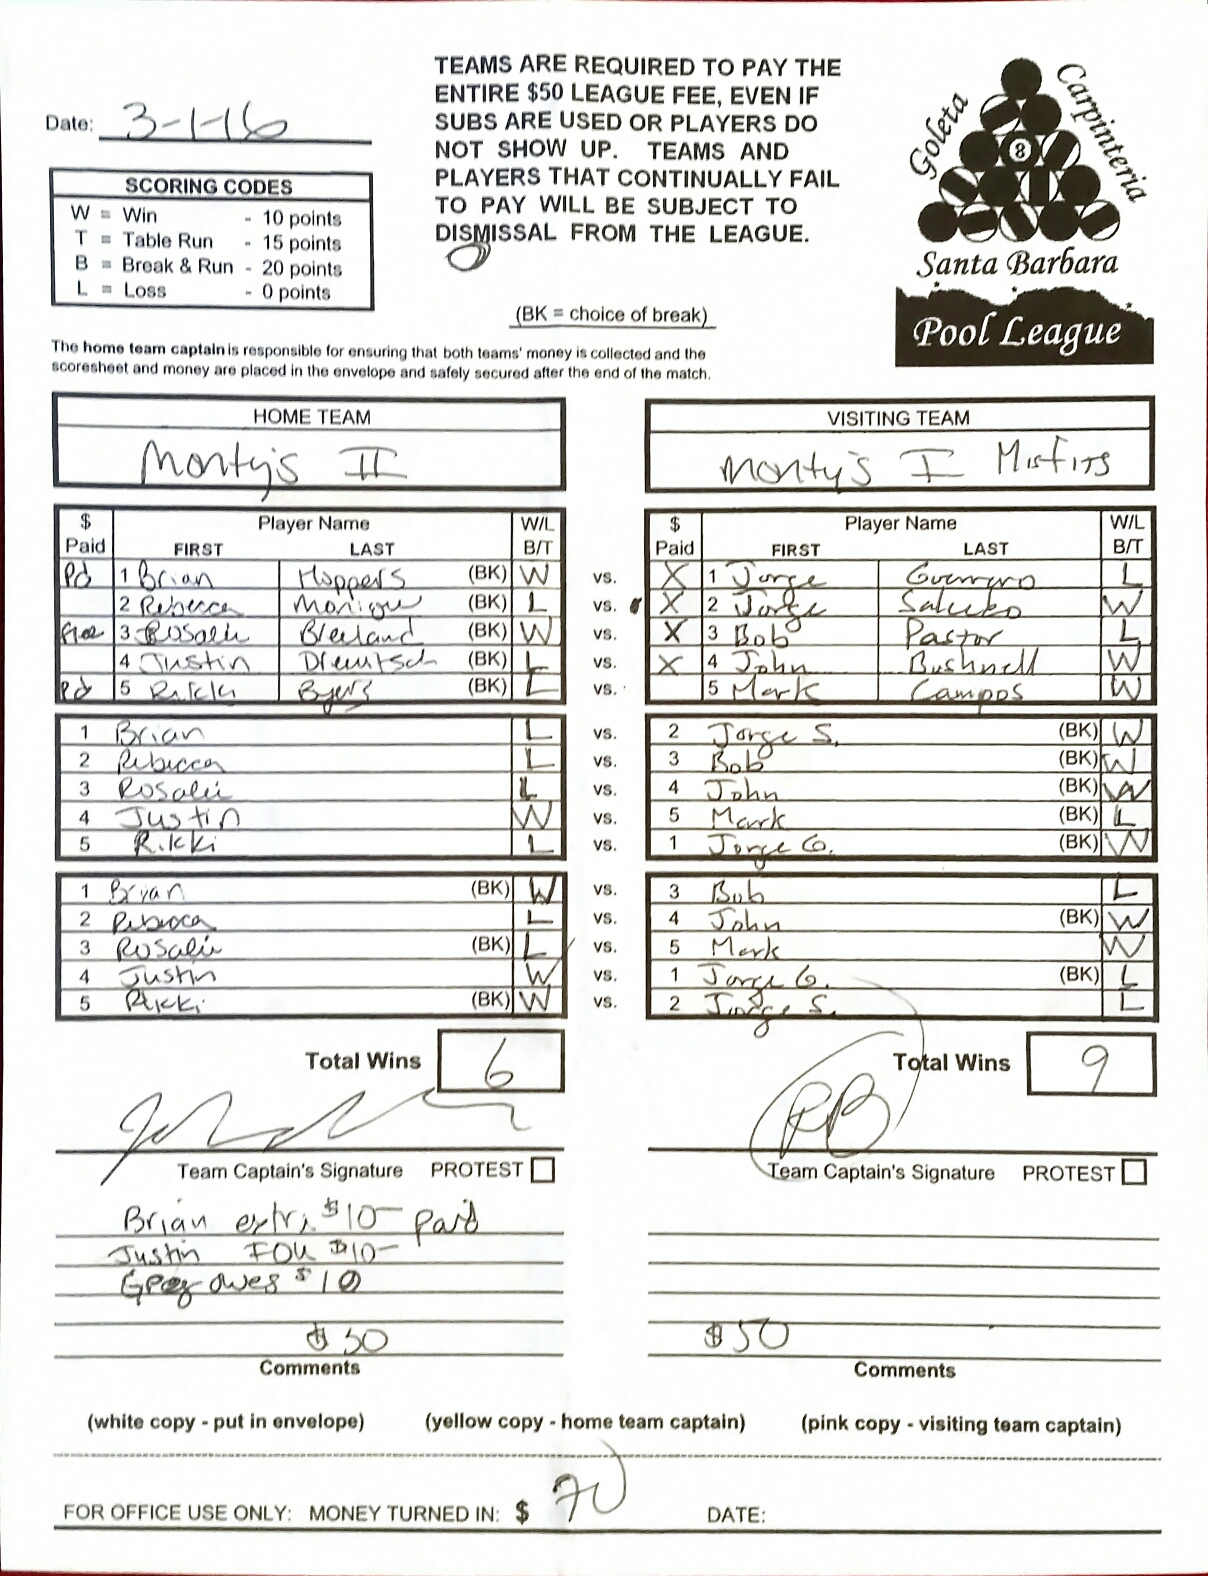 TEAMS ARE REQUIRED TO PAY THE
ENTIRE $50 LEAGUE FEE, EVEN IF
SUBS ARE USED OR PLAYERS DO
NOT SHOW UP. TEAMS AND
PLAYERS THAT CONTINUALLY FAIL
TO PAY WILL BE SUBJECT TO
DISMISSAL FROM THE LEAGUE.
Date: 3-1-16
SCORING CODES
W = Win - 10 points
T = Table Run - 15 points
B = Break & Run - 20 points
L = Loss - 0 points
Goleta Carpinteria
8
Santa Barbara
Pool League
(BK = choice of break)
The home team captain is responsible for ensuring that both teams' money is collected and the
scoresheet and money are placed in the envelope and safely secured after the end of the match.
HOME TEAM VISITING TEAM
Monty's II Monty's I Misfits
$ Paid Player Name FIRST LAST W/L B/T $ Paid Player Name FIRST LAST W/L B/T
Pd 1 Brian Hoppers (BK) W vs. X 1 Jorge Guerrero L
2 Rebecca Monique (BK) L vs. X 2 Jorge W
3 Rosalie (BK) W vs. X 3 Bob Pastor L
4 Justin (BK) L vs. X 4 John Bushnell W
Pd 5 Rikki Byers (BK) L vs. 5 Mark Campos W
1 Brian L vs. 2 Jorge S. (BK) W
2 Rebecca L vs. 3 Bob (BK) W
3 Rosalie L vs. 4 John (BK) W
4 Justin W vs. 5 Mark (BK) L
5 Rikki L vs. 1 Jorge G. (BK) W
1 Bryan (BK) W vs. 3 Bob L
2 Rebecca L vs. 4 John (BK) W
3 Rosalie (BK) L vs. 5 Mark W
4 Justin W vs. 1 Jorge G. (BK) L
5 Rikki (BK) W vs. 2 Jorge S. L
Total Wins 6 Total Wins 9
Team Captain's Signature PROTEST Team Captain's Signature PROTEST
Brian extra $10- paid
Justin IOU $10-
Greg owes $10
$50 $50
Comments Comments
(white copy - put in envelope) (yellow copy - home team captain) (pink copy - visiting team captain)
FOR OFFICE USE ONLY: MONEY TURNED IN: $ 70 DATE: